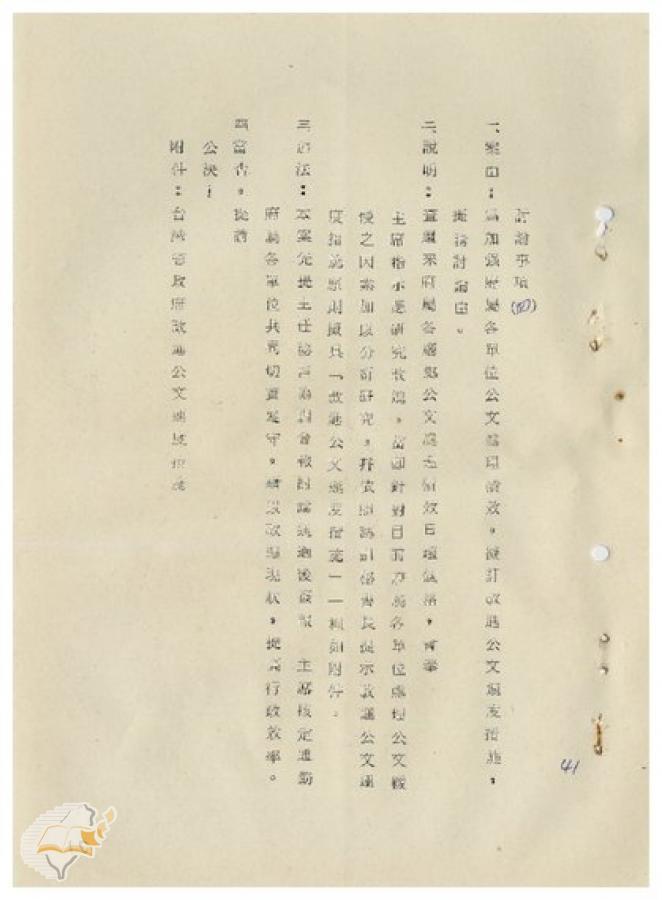 討論事項(四)
一、案由：為加強府屬各單位公文處理績效，擬訂改進公文速度措施，
提請討論由。
二、說明：查邇來府屬各廳處公文處理績效日趨低落，曾奉
主席指示應研究改進，當即針對目前府屬各單位處理公文緩
慢之因素加以分析研究，并依照秘書長提示改進公文速
度措施原則擬具「改進公文速度措施」一種如附件。
三、辦法：本案先提主任秘書會報討論通過後簽報 主席核定通飭
府屬各單位共同切實遵守，以改進現狀，提高行政效率。
四、當否，提請
公決！
附件：台灣省政府改進公文速度措施
41